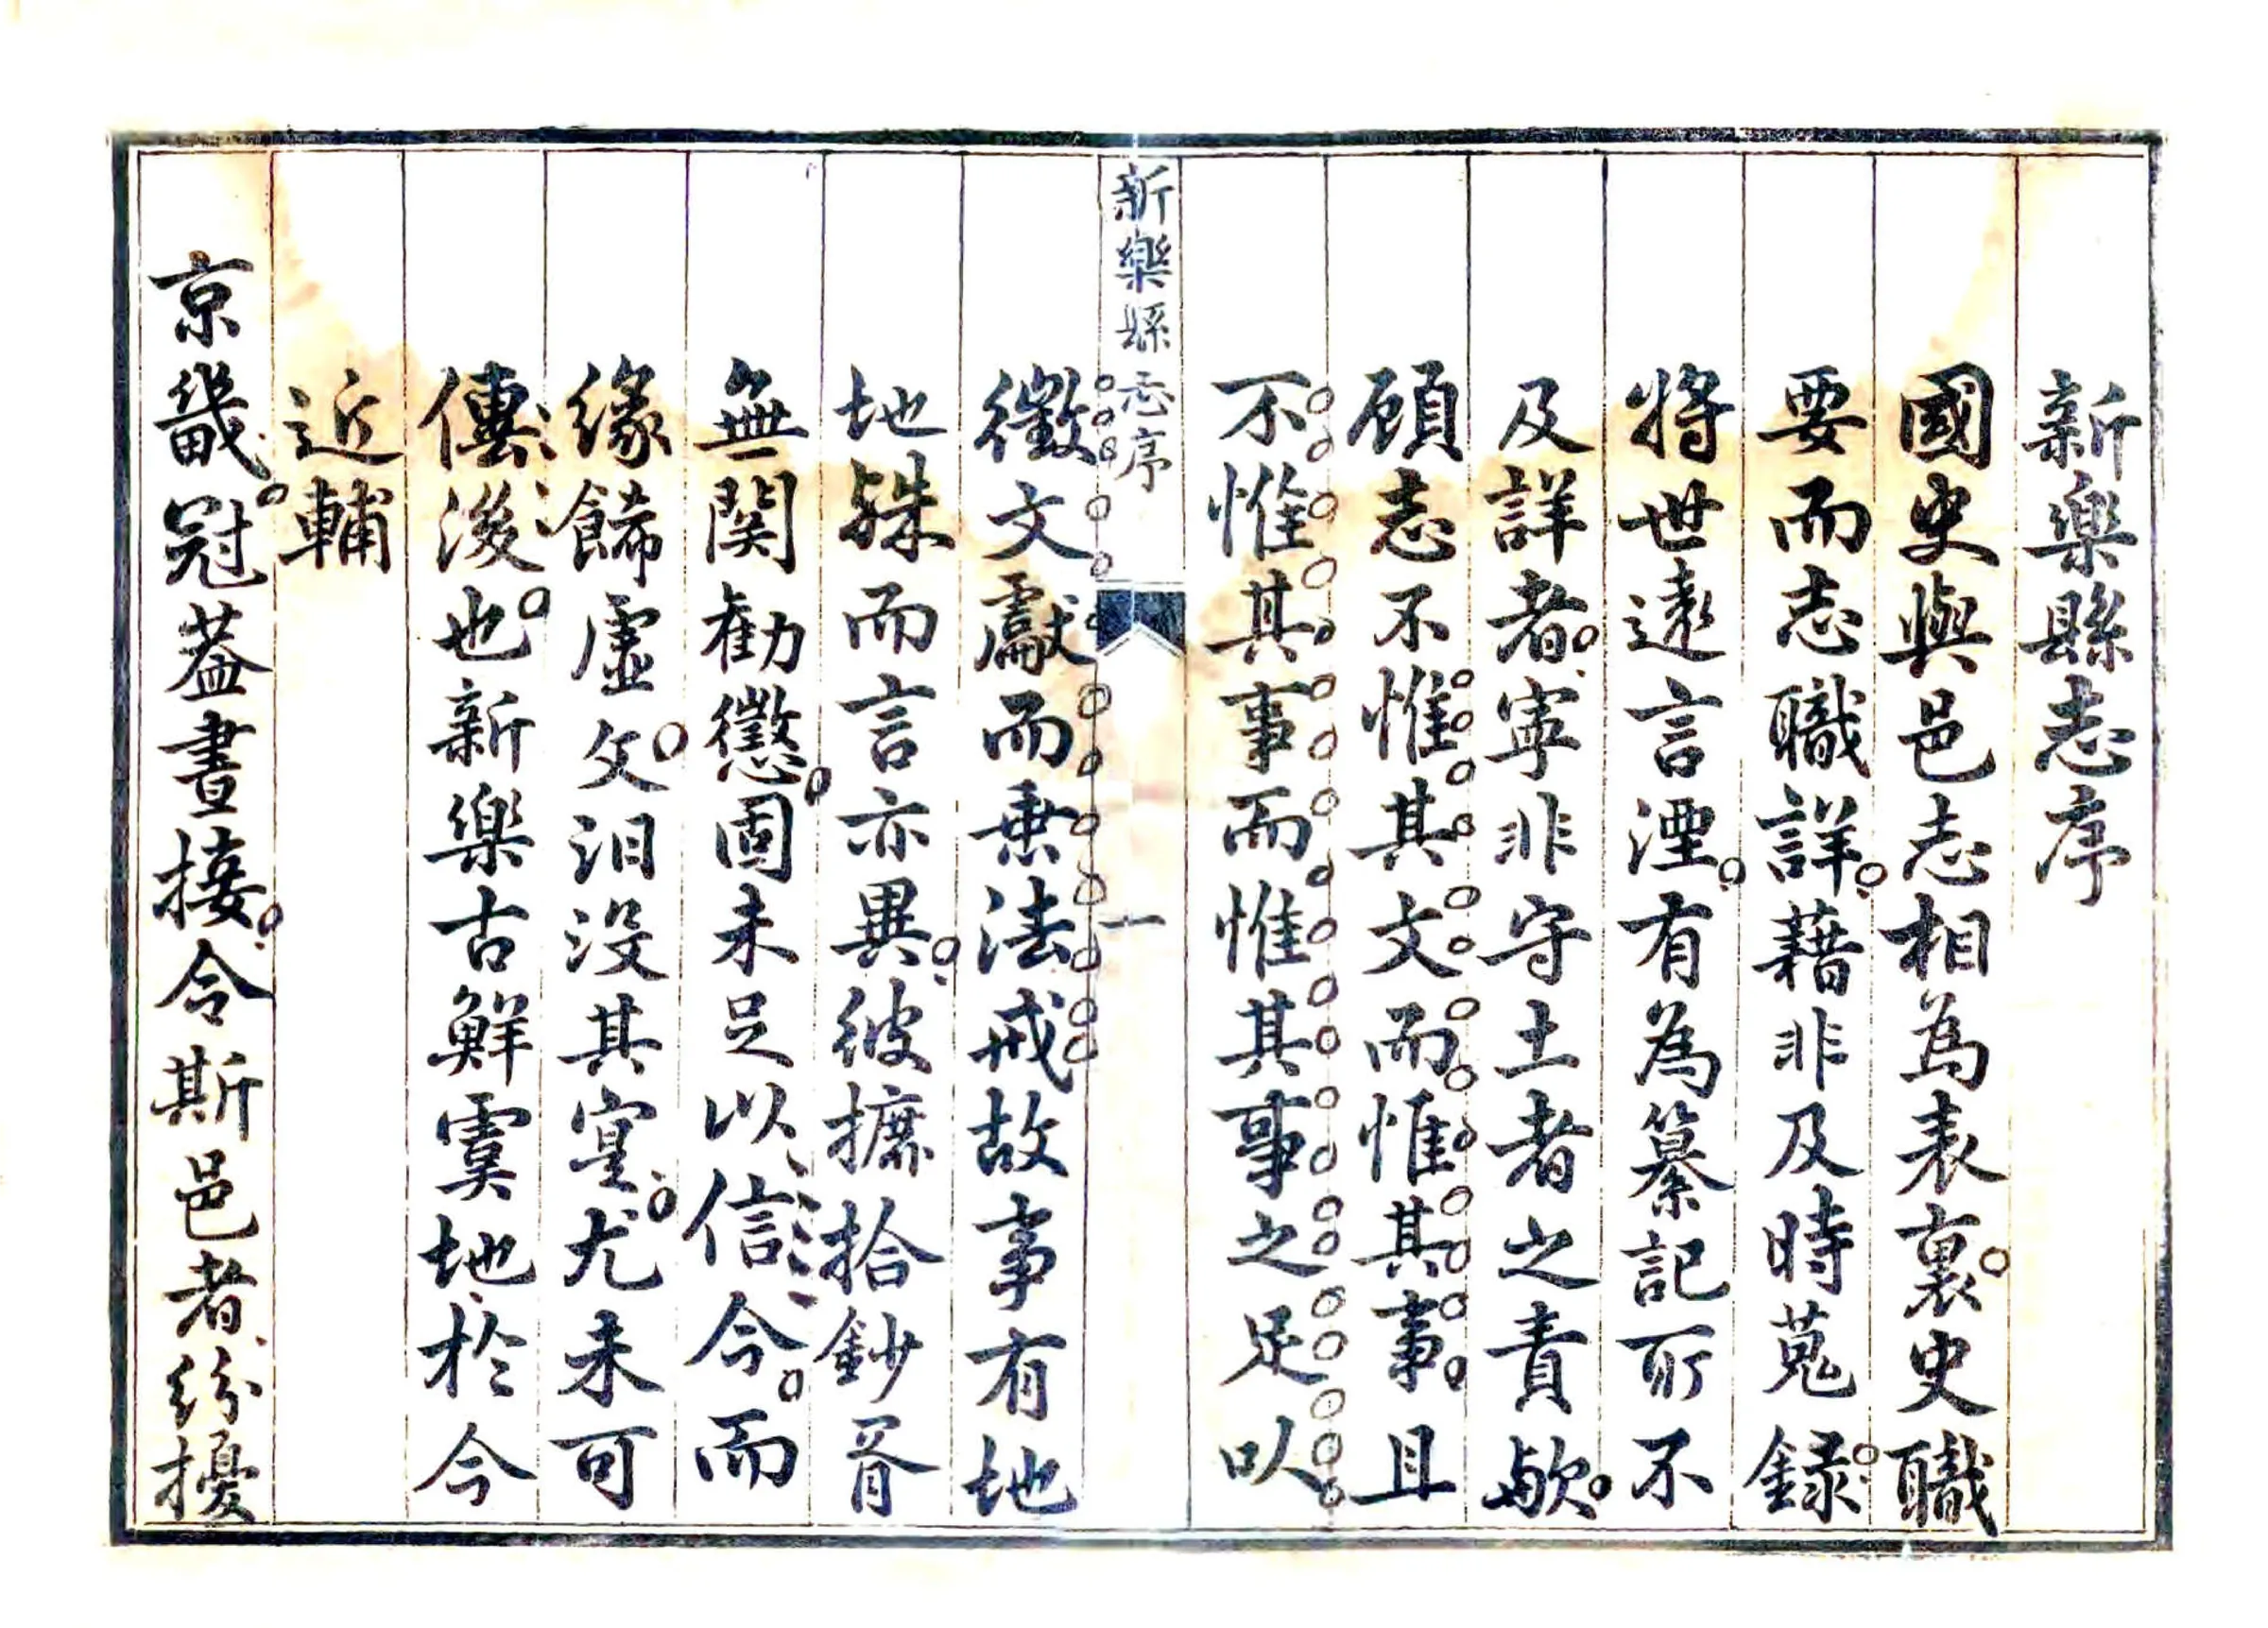 新樂縣志序
國史與邑志相為表裏史職
要而志職詳藉非及時蒐録
將世逺言湮有為纂記所不
及詳者寧非守土者之責歟
顧志不惟其文而惟其事且
不惟其事而惟其事之足以
新樂縣志序
一
徵文獻而垂法戒故事有地
地殊而言亦異彼摭拾鈔胥
無関勸懲固未足以信今而
緣餙虛文汩没其實尤未可
傳後也新樂古鮮虞地於今
近輔
京畿冠葢晝接令斯邑者紛擾